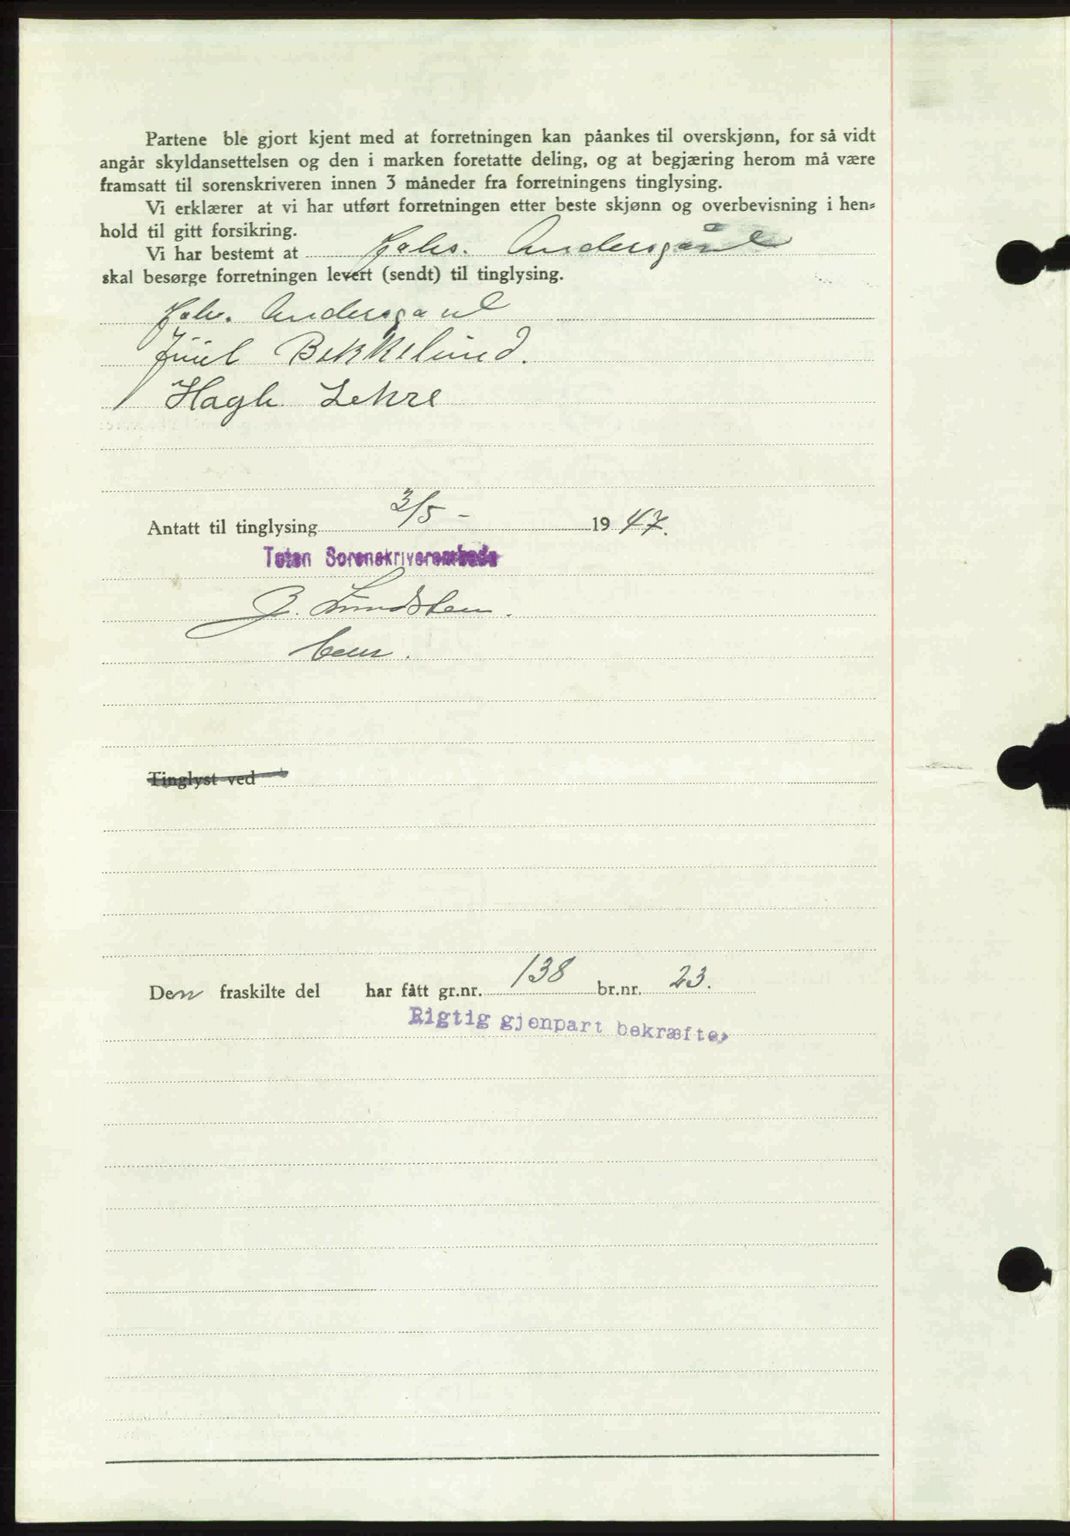 Partene ble gjort kjent med at forretningen kan påankes til overskjønn, for så vidt
angår skyldansettelsen og den i marken foretatte deling, og at begjæring herom må være
framsatt til sorenskriveren innen 3 måneder fra forretningens tinglysing.
Vi erklærer at vi har utført forretningen etter beste skjønn og overbevisning i hen-
hold til gitt forsikring.
Vi har bestemt at Johs. Andersgård
skal besørge forretningen levert (sendt) til tinglysing.
Johs. Andersgård
Juul Bekkelund.
Hagb. Lehre
Antatt til tinglysing 3/5 - 19 47.
Toten Sorenskriverembede
Lundsten.
Den fraskilte del har fått gr.nr. 138 br.nr. 23.
Rigtig gjenpart bekræftes